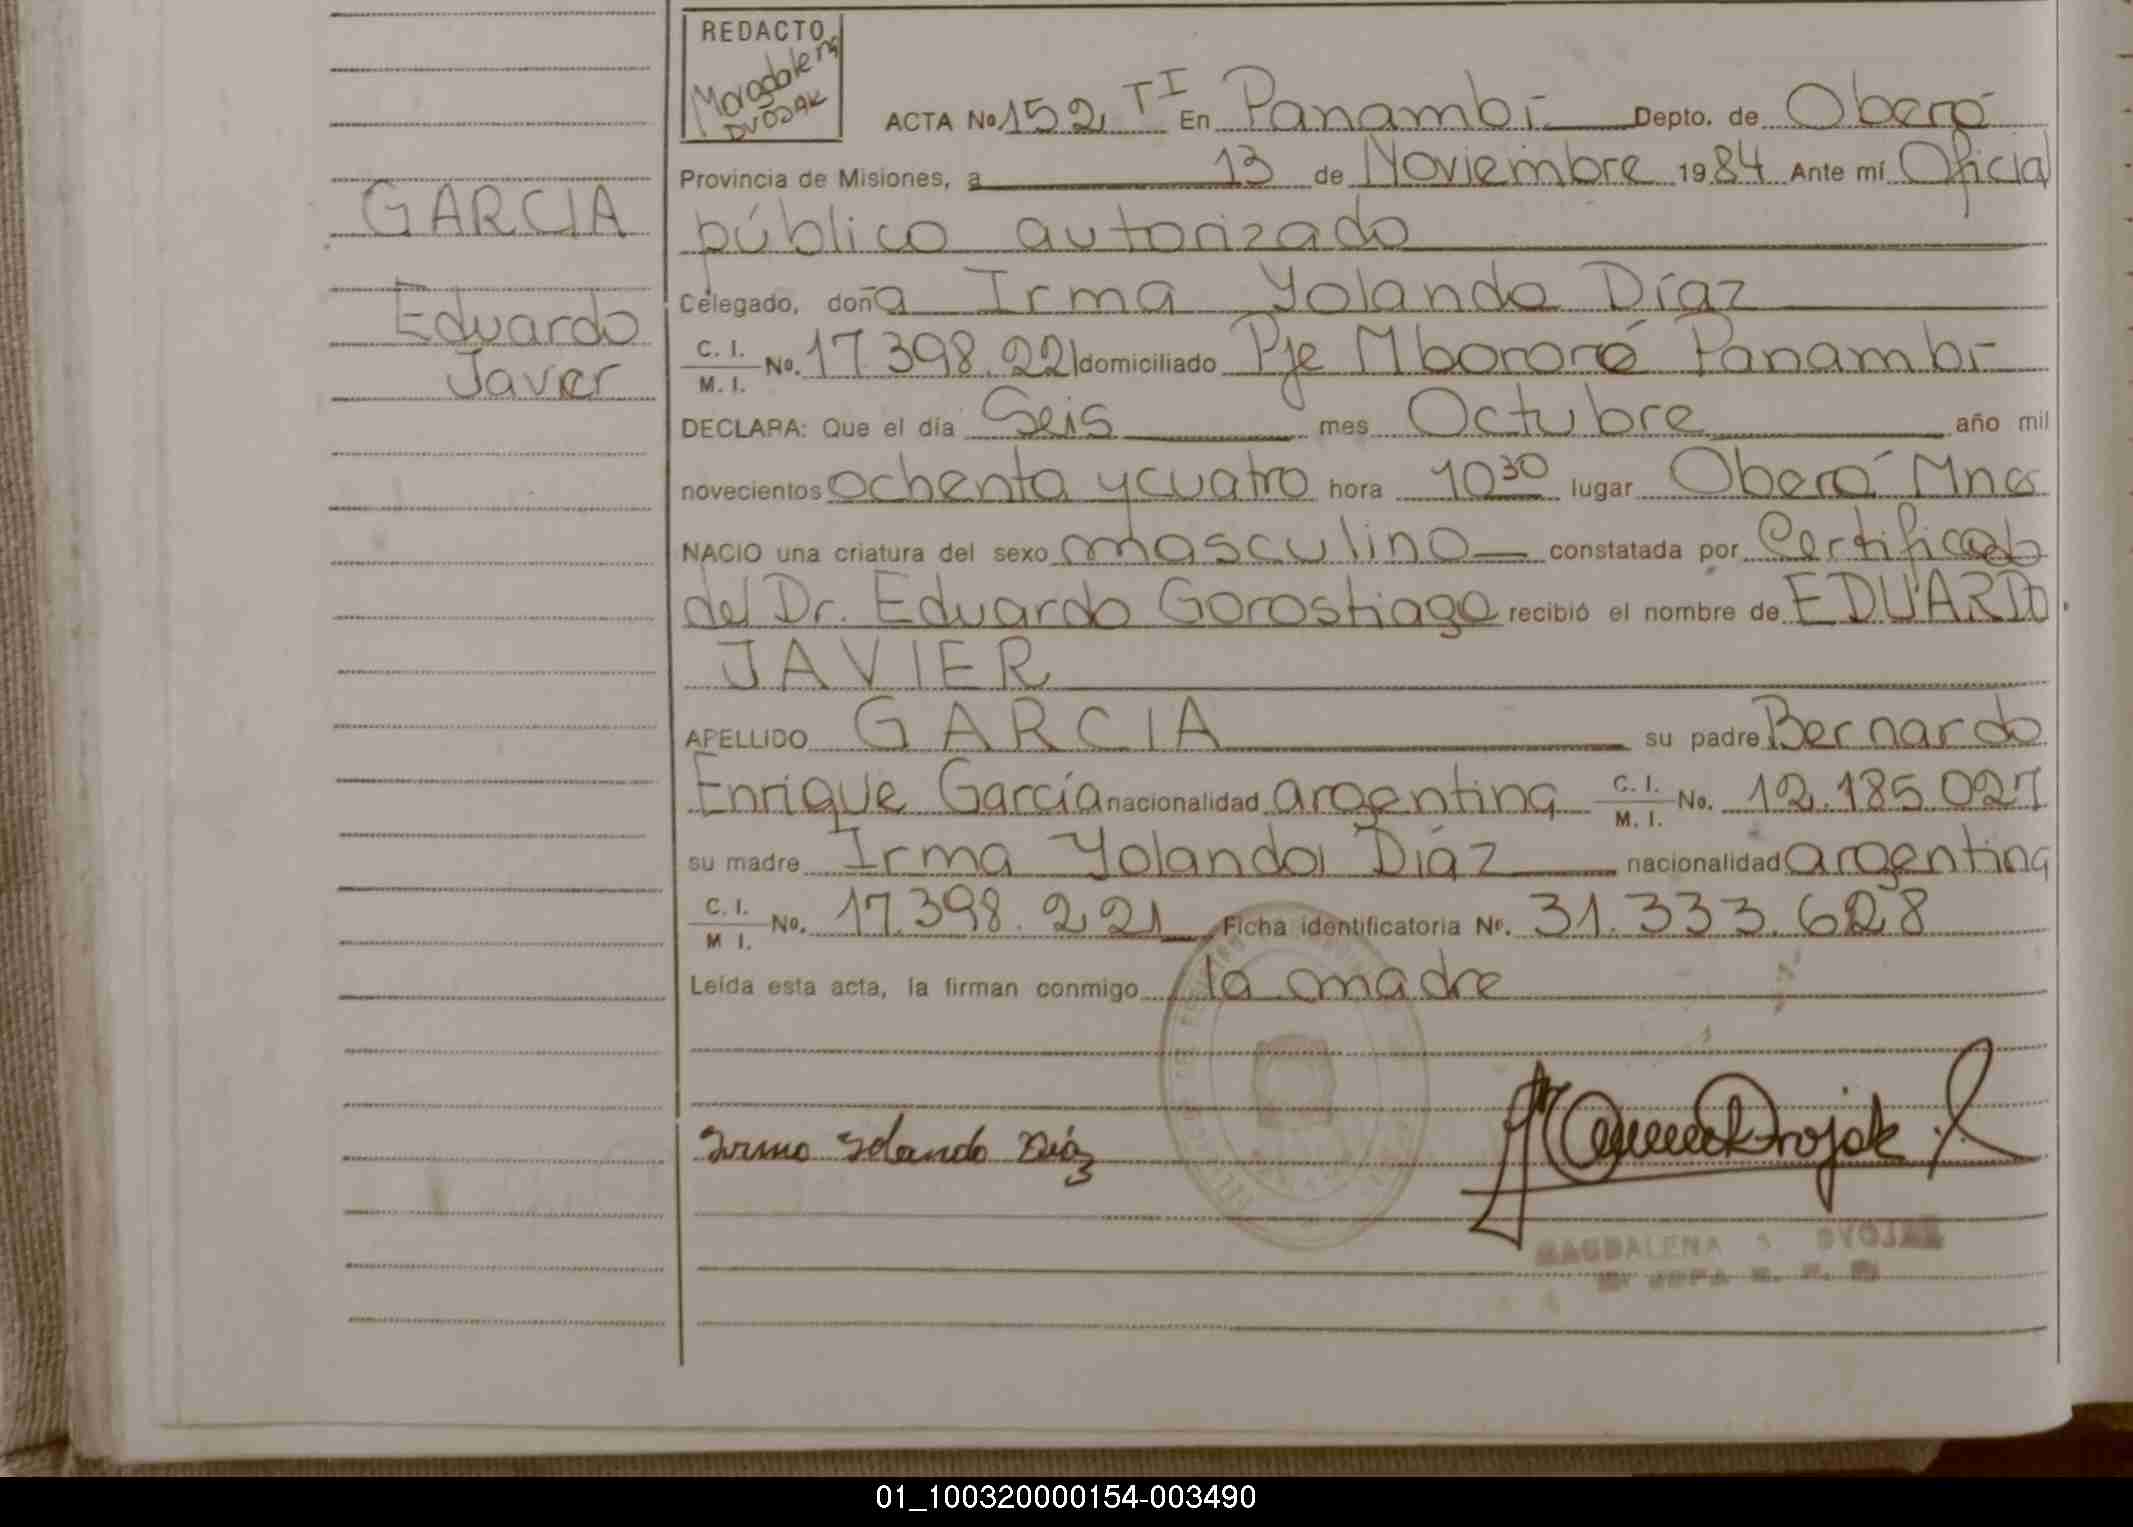 REDACTO
Maragdalena
DVOJAK
ACTA No 152 TI En Panambí Depto. de Oberá
Provincia de Misiones, a 13 de Noviembre 1984 Ante mí Oficial
público autorizado
Celegado, doña Irma Yolanda Díaz
C. I. / M. I. No. 17.398.221 domiciliado Pje Mbororé Panambí
DECLARA: Que el día Seis mes Octubre año mil
novecientos ochenta y cuatro hora 10 30 lugar Oberá Mnes
NACIO una criatura del sexo masculino constatada por Certificado
del Dr. Eduardo Gorostiaga recibió el nombre de EDUARDO
JAVIER
APELLIDO GARCIA su padre Bernardo
Enrique García nacionalidad argentina C. I. / M. I. No. 12.185.027
su madre Irma Yolanda Díaz nacionalidad argentina
C. I. / M I. No. 17.398.221 Ficha identificatoria Nº. 31.333.628
Leída esta acta, la firman conmigo la madre
GARCIA
Eduardo
Javier
Irma Yolanda Díaz
MAGDALENA S. DVOJAK
01_100320000154-003490